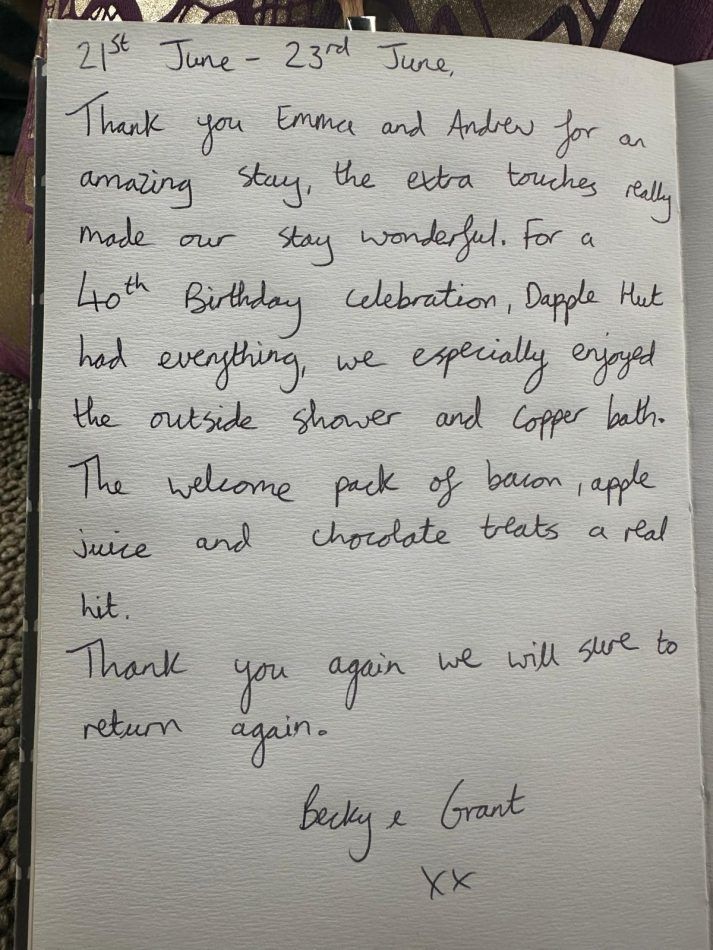 21st June - 23rd June,
Thank you Emma and Andrew for an
amazing stay, the extra touches really
made our stay wonderful. For a
40th Birthday celebration, Dapple Hut
had everything, we especially enjoyed
the outside shower and copper bath.
The welcome pack of bacon, apple
juice and chocolate treats a real
hit.
Thank you again we will sure to
return again.
Becky & Grant
xx